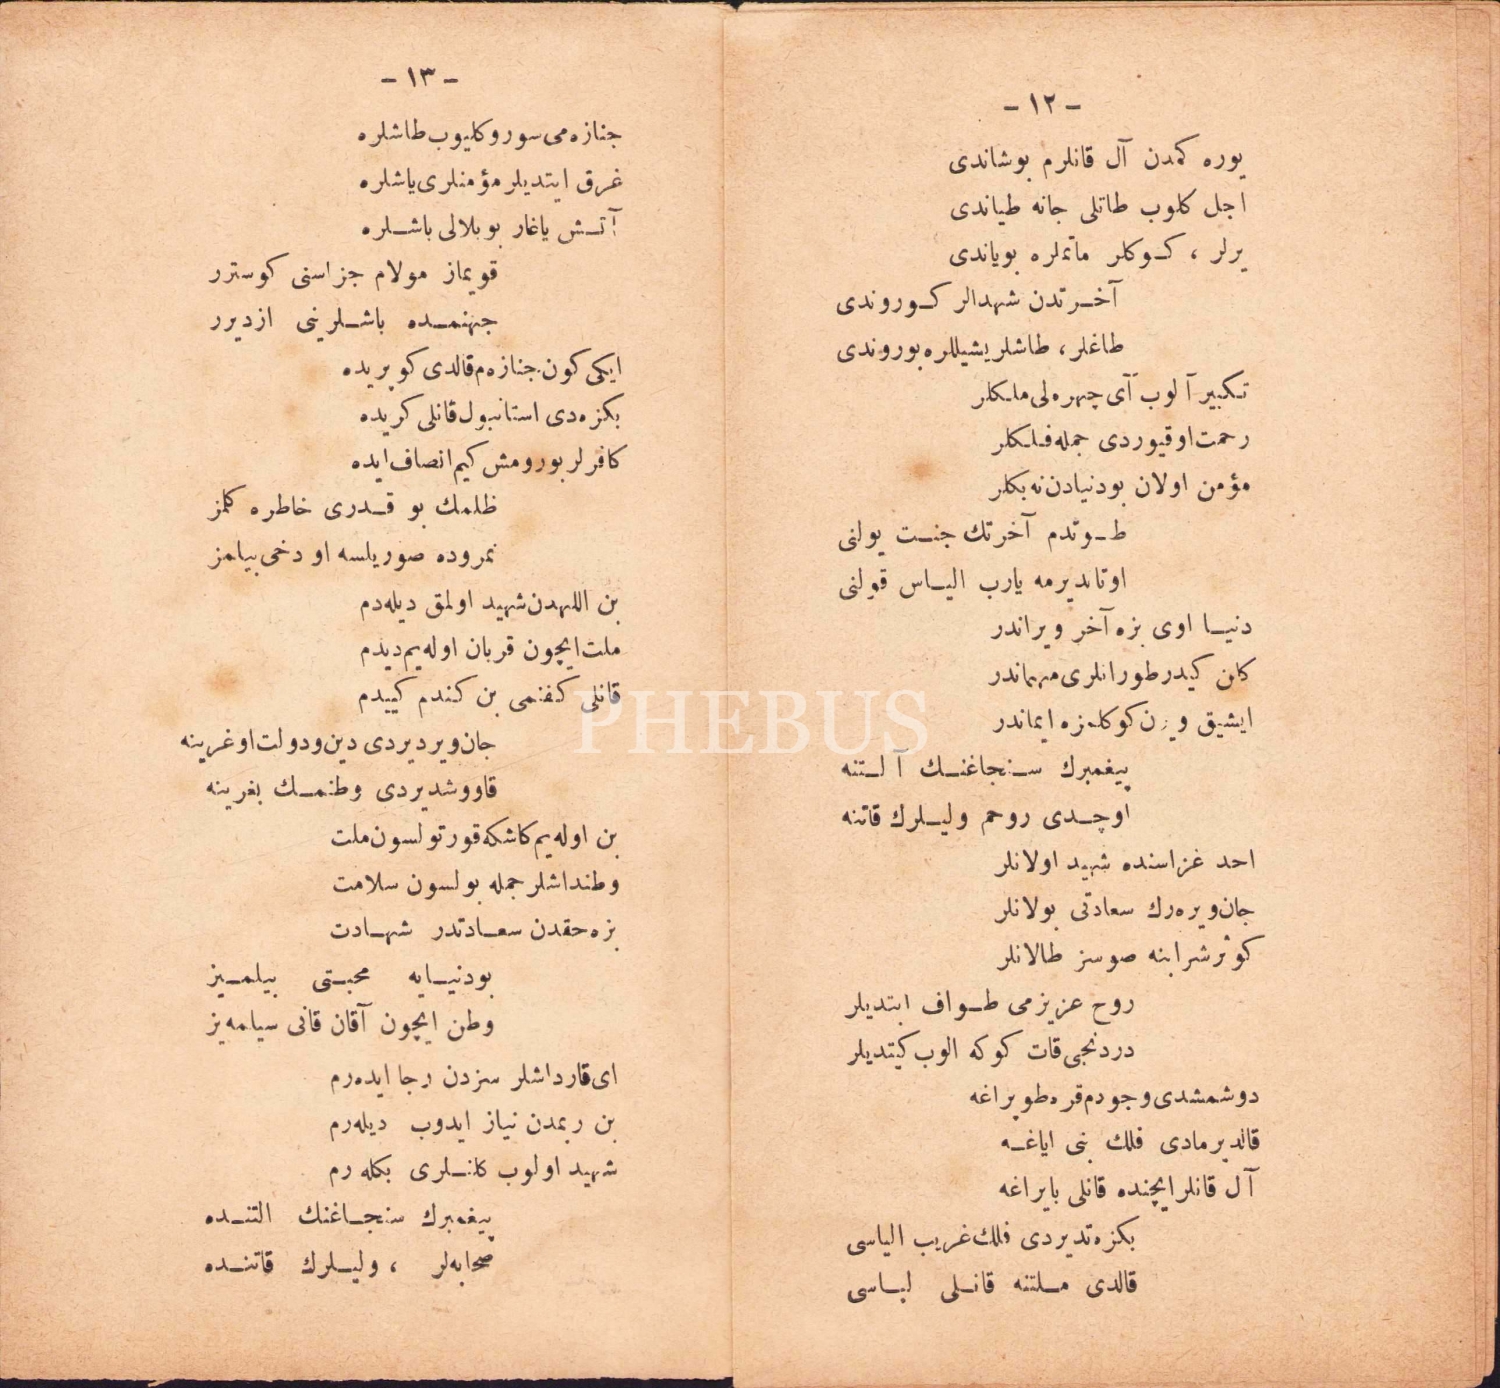 - ١٢ -
يوره كمدن آل قانلرم بوشاندى
اجل كلوب طاتلى جانه طياندى
يرلر ، كوكلر ماتملره بوياندى
آخرتدن شهدالر كوروندى
طاغلر، طاشلر يشيللره بوروندى
تكبير آلوب آى چهره‌لى ملكلر
رحمت اوقيوردى جمله فلكلر
مؤمن اولان بو دنيادن نه بكلر
طوتدم آخرتك جنت يولنى
اوتانديرمه يارب الياس قولنى
دنيا اوى بزه آخر ويراندر
كلن كيدر طورانلرى مهماندر
ايشيق ويرن كوكلمزه ايماندر
پيغمبرك سنجاغنك آلتنه
اوچدى روحم وليلرك قاتنه
احد غزاسنده شهيد اولانلر
جان ويره‌رك سعادتى بولانلر
كوثر شرابنه صوسز طالانلر
روح عزيزمى طواف ايتديلر
دردنجى قات كوكه الوب كيتديلر
دوشمشدى وجودم قره طوپراغه
قالديرمادى فلك بنى اياغه
آل قانلر ايچنده قانلى بايراغه
بكزه‌تديردى فلك غريب الياسى
قالدى ملتنه قانلى لباسى
- ١٣ -
جنازه‌مى سوروكليوب طاشلره
غرق ايتديلر مؤمنلرى ياشلره
آتش ياغار بو بلالى باشلره
قويماز مولام جزاسنى كوسترر
جهنمده باشلرينى ازديرر
ايكى كون جنازه‌م قالدى كوپريده
بكزه‌دى استانبول قانلى كريده
كافرلر بورومش كيم انصاف ايده
ظلمك بو قدرى خاطره كلمز
نمروده صوريلسه او دخى بيلمز
بن اللهدن شهيد اولمق ديله‌دم
ملت ايچون قربان اوله‌يم ديدم
قانلى كفنمى بن كندم كييدم
جان ويرديردى دين ودولت اوغرينه
قاووشديردى وطنمك بغرينه
بن اوله‌يم كاشكه قورتولسون ملت
وطنداشلر جمله بولسون سلامت
بزه حقدن سعادتدر شهادت
بودنيايه محبتى بيلميز
وطن ايچون آقان قانى سيلمه‌يز
اى قارداشلر سزدن رجا ايده‌رم
بن ربمدن نياز ايدوب ديله‌رم
شهيد اولوب كلنلرى بكله‌رم
پيغمبرك سنجاغنك التنده
صحابه‌لر ، وليلرك قاتنده
PHEBUS